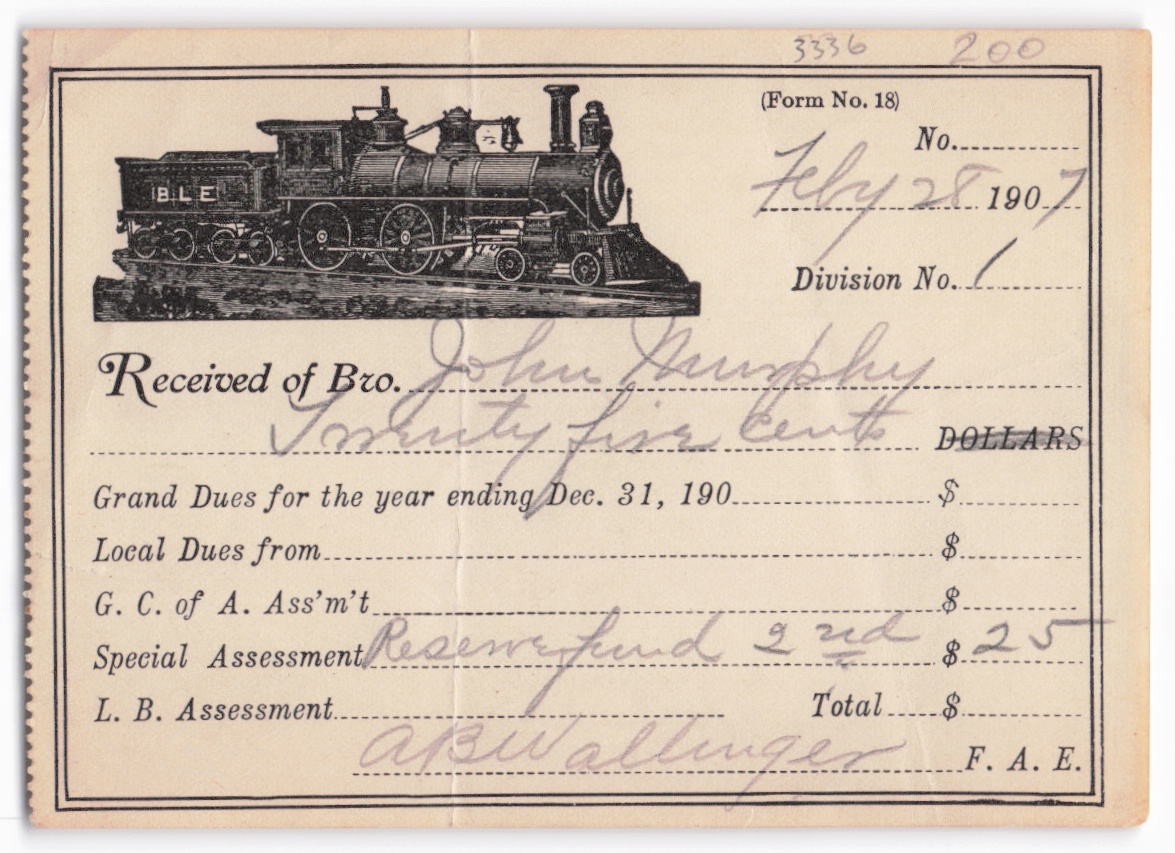 3336 200
(Form No. 18)
No.
B. L. E.
Feby 28 1907
Division No. 1
Received of Bro. John Murphy
Twenty five cents DOLLARS
Grand Dues for the year ending Dec. 31, 190 $
Local Dues from $
G. C. of A. Ass'm't $
Special Assessment Reserve fund 2nd $ 25
L. B. Assessment Total $
A B Wallinger F. A. E.